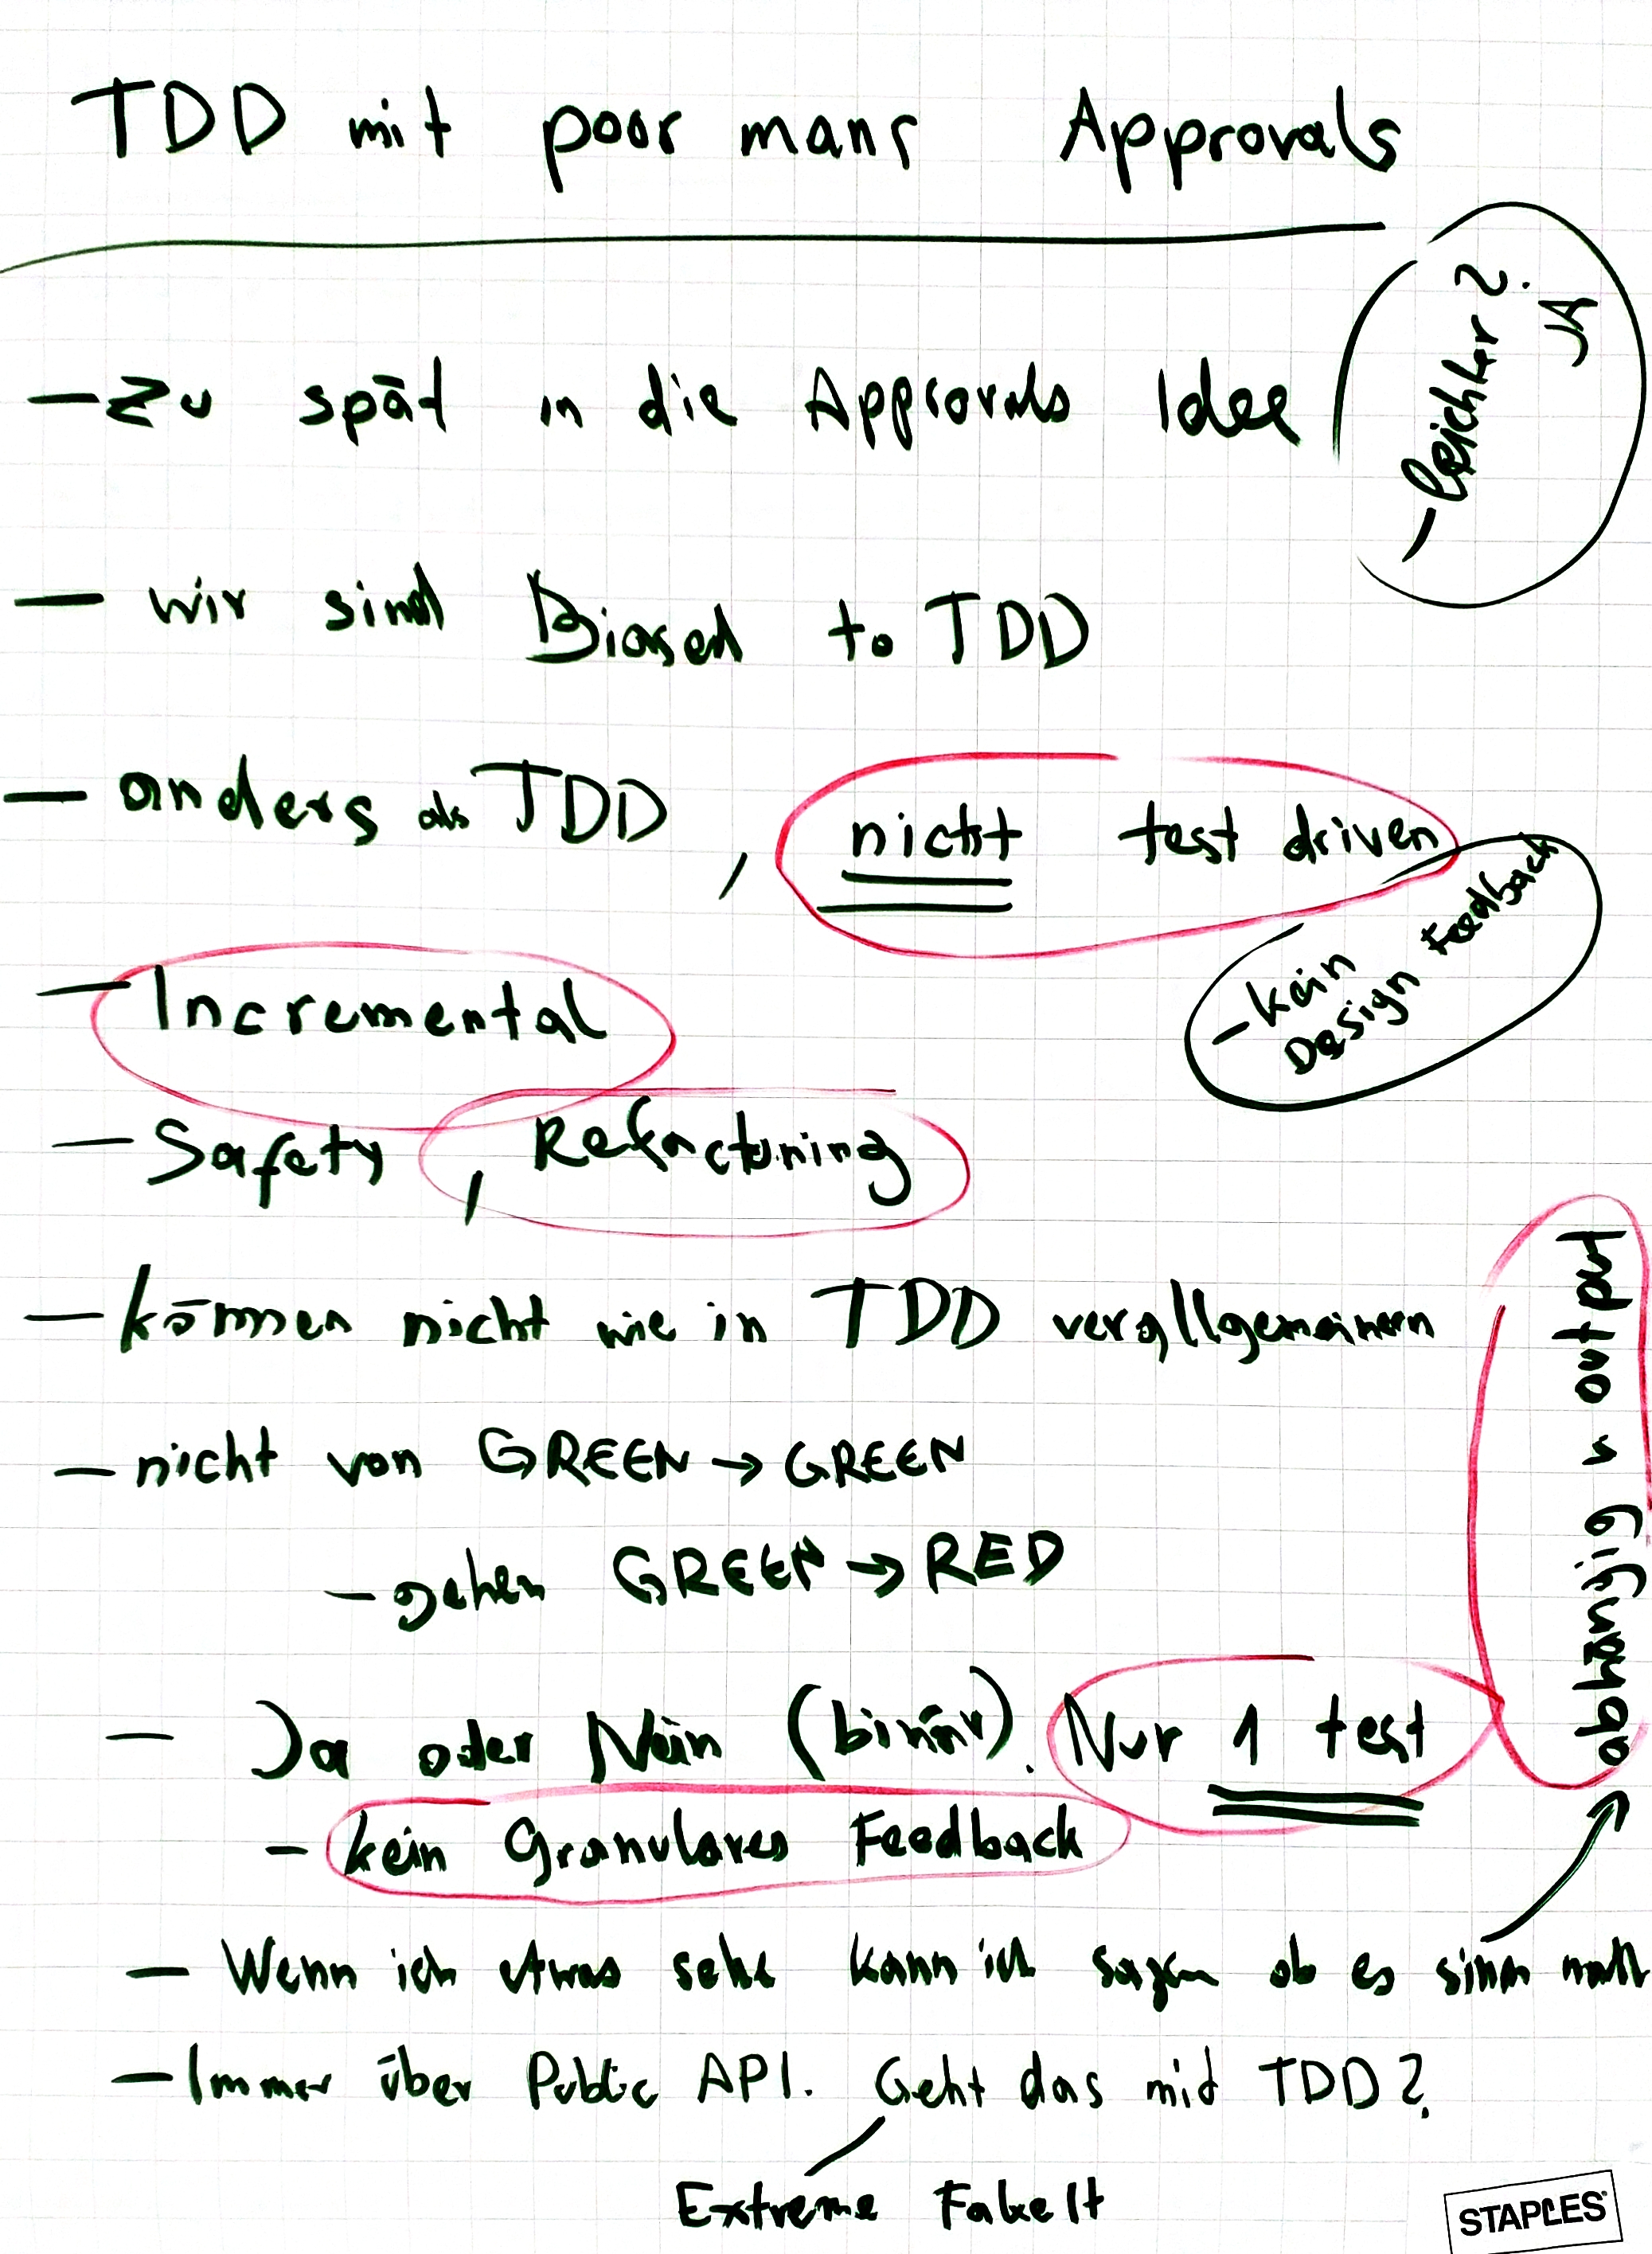 TDD mit poor mans Approvals
- leichter?
JA
- Zu spät in die Approvals Idee
- wir sind Biased to TDD
- anders als TDD, nicht test driven
- kein
Design Feedback
- Incremental
- Safety, Refactoring
- können nicht wie in TDD verallgemeinern
- nicht von GREEN → GREEN
- gehen GREEN → RED
- Ja oder Nein (binär). Nur 1 test
- kein Granulares Feedback
abhängig v output
- Wenn ich etwas sehe kann ich sagen ob es sinn macht
- Immer über Public API. Geht das mit TDD?
Extreme Fake It
STAPLES